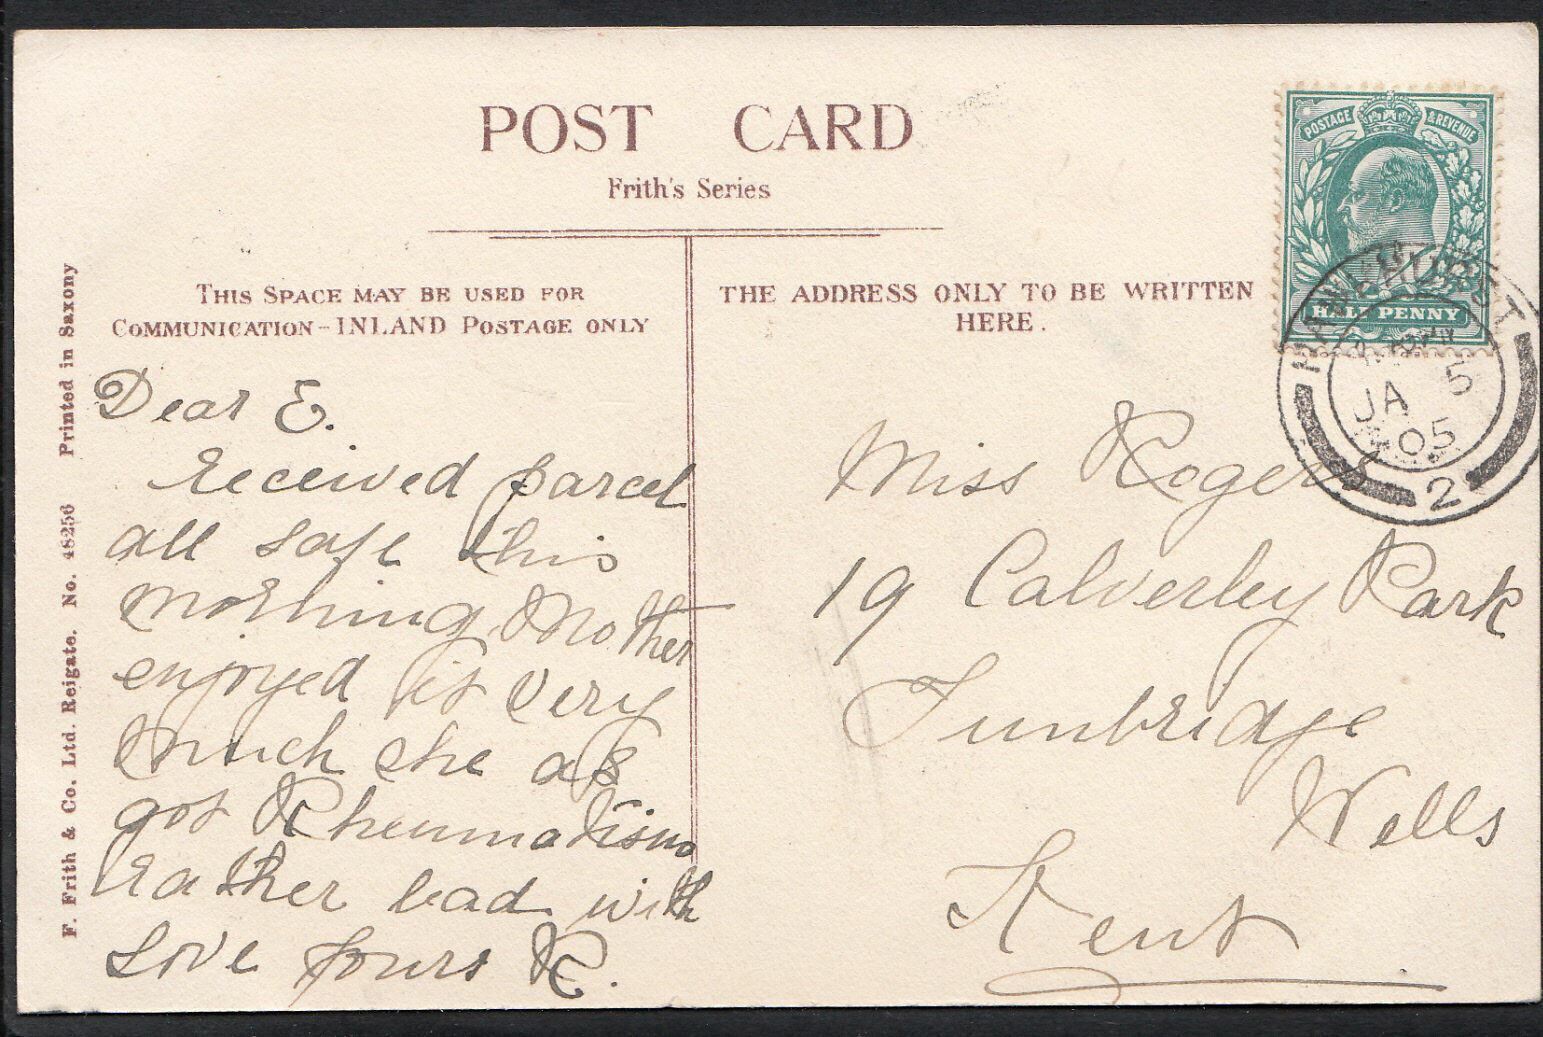 POST CARD
Frith's Series
THIS SPACE MAY BE USED FOR
COMMUNICATION-INLAND POSTAGE ONLY
Dear E.
Received parcel
all safe this
morning, Mother
enjoyed it very
much she as
got Rheumatism
Rather bad with
Love yours R.
THE ADDRESS ONLY TO BE WRITTEN
HERE.
Miss Rogers
19 Calverley Park
Tunbridge
Wells
Kent
POSTAGE & REVENUE
HALF PENNY
HAWKHURST
JA 5
05
2
F. Frith & Co. Ltd. Reigate. No. 48256 Printed in Saxony